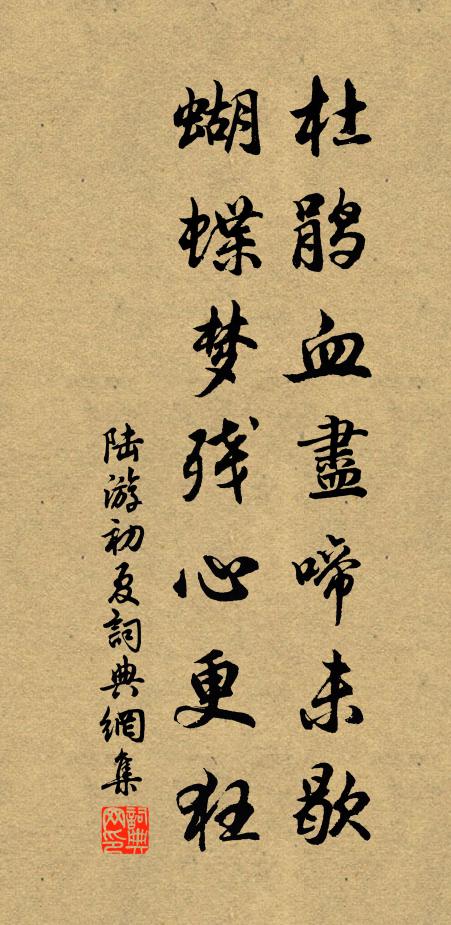 杜鹃血盡啼未歇
蝴蝶梦残心更狂
陆游初夏詞典網集
詞典网印